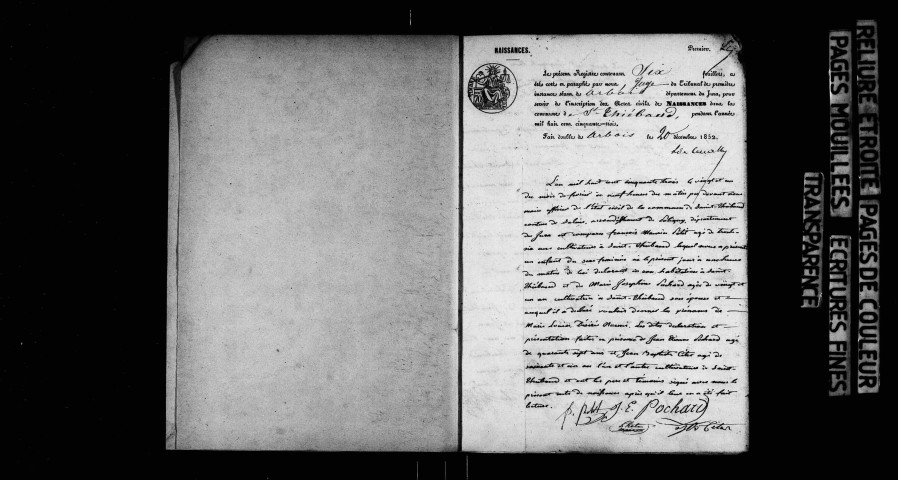 NAISSANCES.
Premier.
Le présent Registre contenant Six feuillets, a
été coté et paraphé par nous Juge du Tribunal de première
instance séant à Arbois département du Jura, pour
servir à l'inscription des Actes civils de NAISSANCES dans la
commune de St Thiébaud, pendant l'année
mil huit cent cinquante-trois.
Fait double à Arbois le 20 décembre 1852.
L'an mil huit cent cinquante trois le vingt et un
du mois de février à neuf heures du matin par devant nous
maire officier de l'état civil de la commune de Saint-Thiébaud
canton de Salins, arrondissement de Poligny, département
du Jura est comparu françois Petit agé de trente
six ans cultivateur à Saint-Thiébaud lequel nous a présenté
un enfant du sexe féminin né le présent jour à heures
du matin de lui déclarant en son habitation à Saint-
Thiébaud et de Marie Josephine Pochard agée de vingt et
un an cultivatrice à Saint-Thiébaud son épouse et
auquel il a déclaré vouloir donner les prénoms de
Marie Louise Désirée Noemi. Les dites déclaration et
présentation faites en présence de Jean Etienne Pochard agé
de quarante sept ans et Jean Baptiste agé de
soixante et six ans l'un et l'autre cultivateurs à Saint-
Thiébaud et ont les père et témoins signé avec nous le
présent acte de naissance après qu'il leur en a été fait
lecture.
f. petit J. E. Pochard
RELIURE ETROITE
PAGES MOUILLEES
TRANSPARENCE
PAGES DE COULEUR
ECRITURES FINES